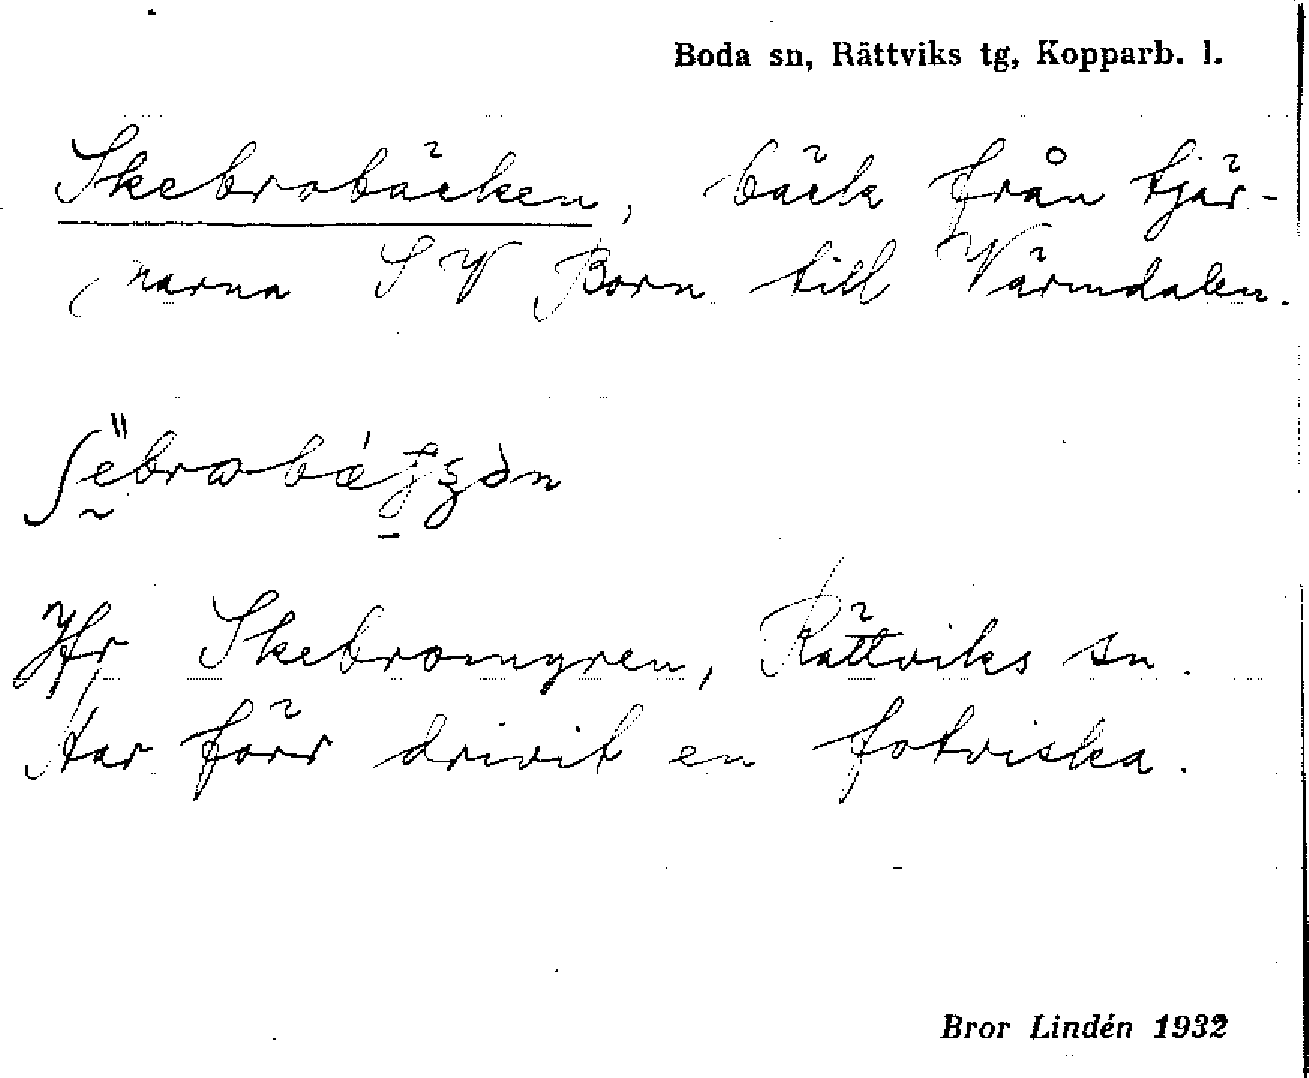 Boda sn, Rättviks tg, Kopparb. l.
Skebrobäcken, bäck från tjär-
narna SV Born till Värmdalen.
Jfr Skebromyren, Rättviks sn.
Har förr drivit en fotviska.
Bror Lindén 1932